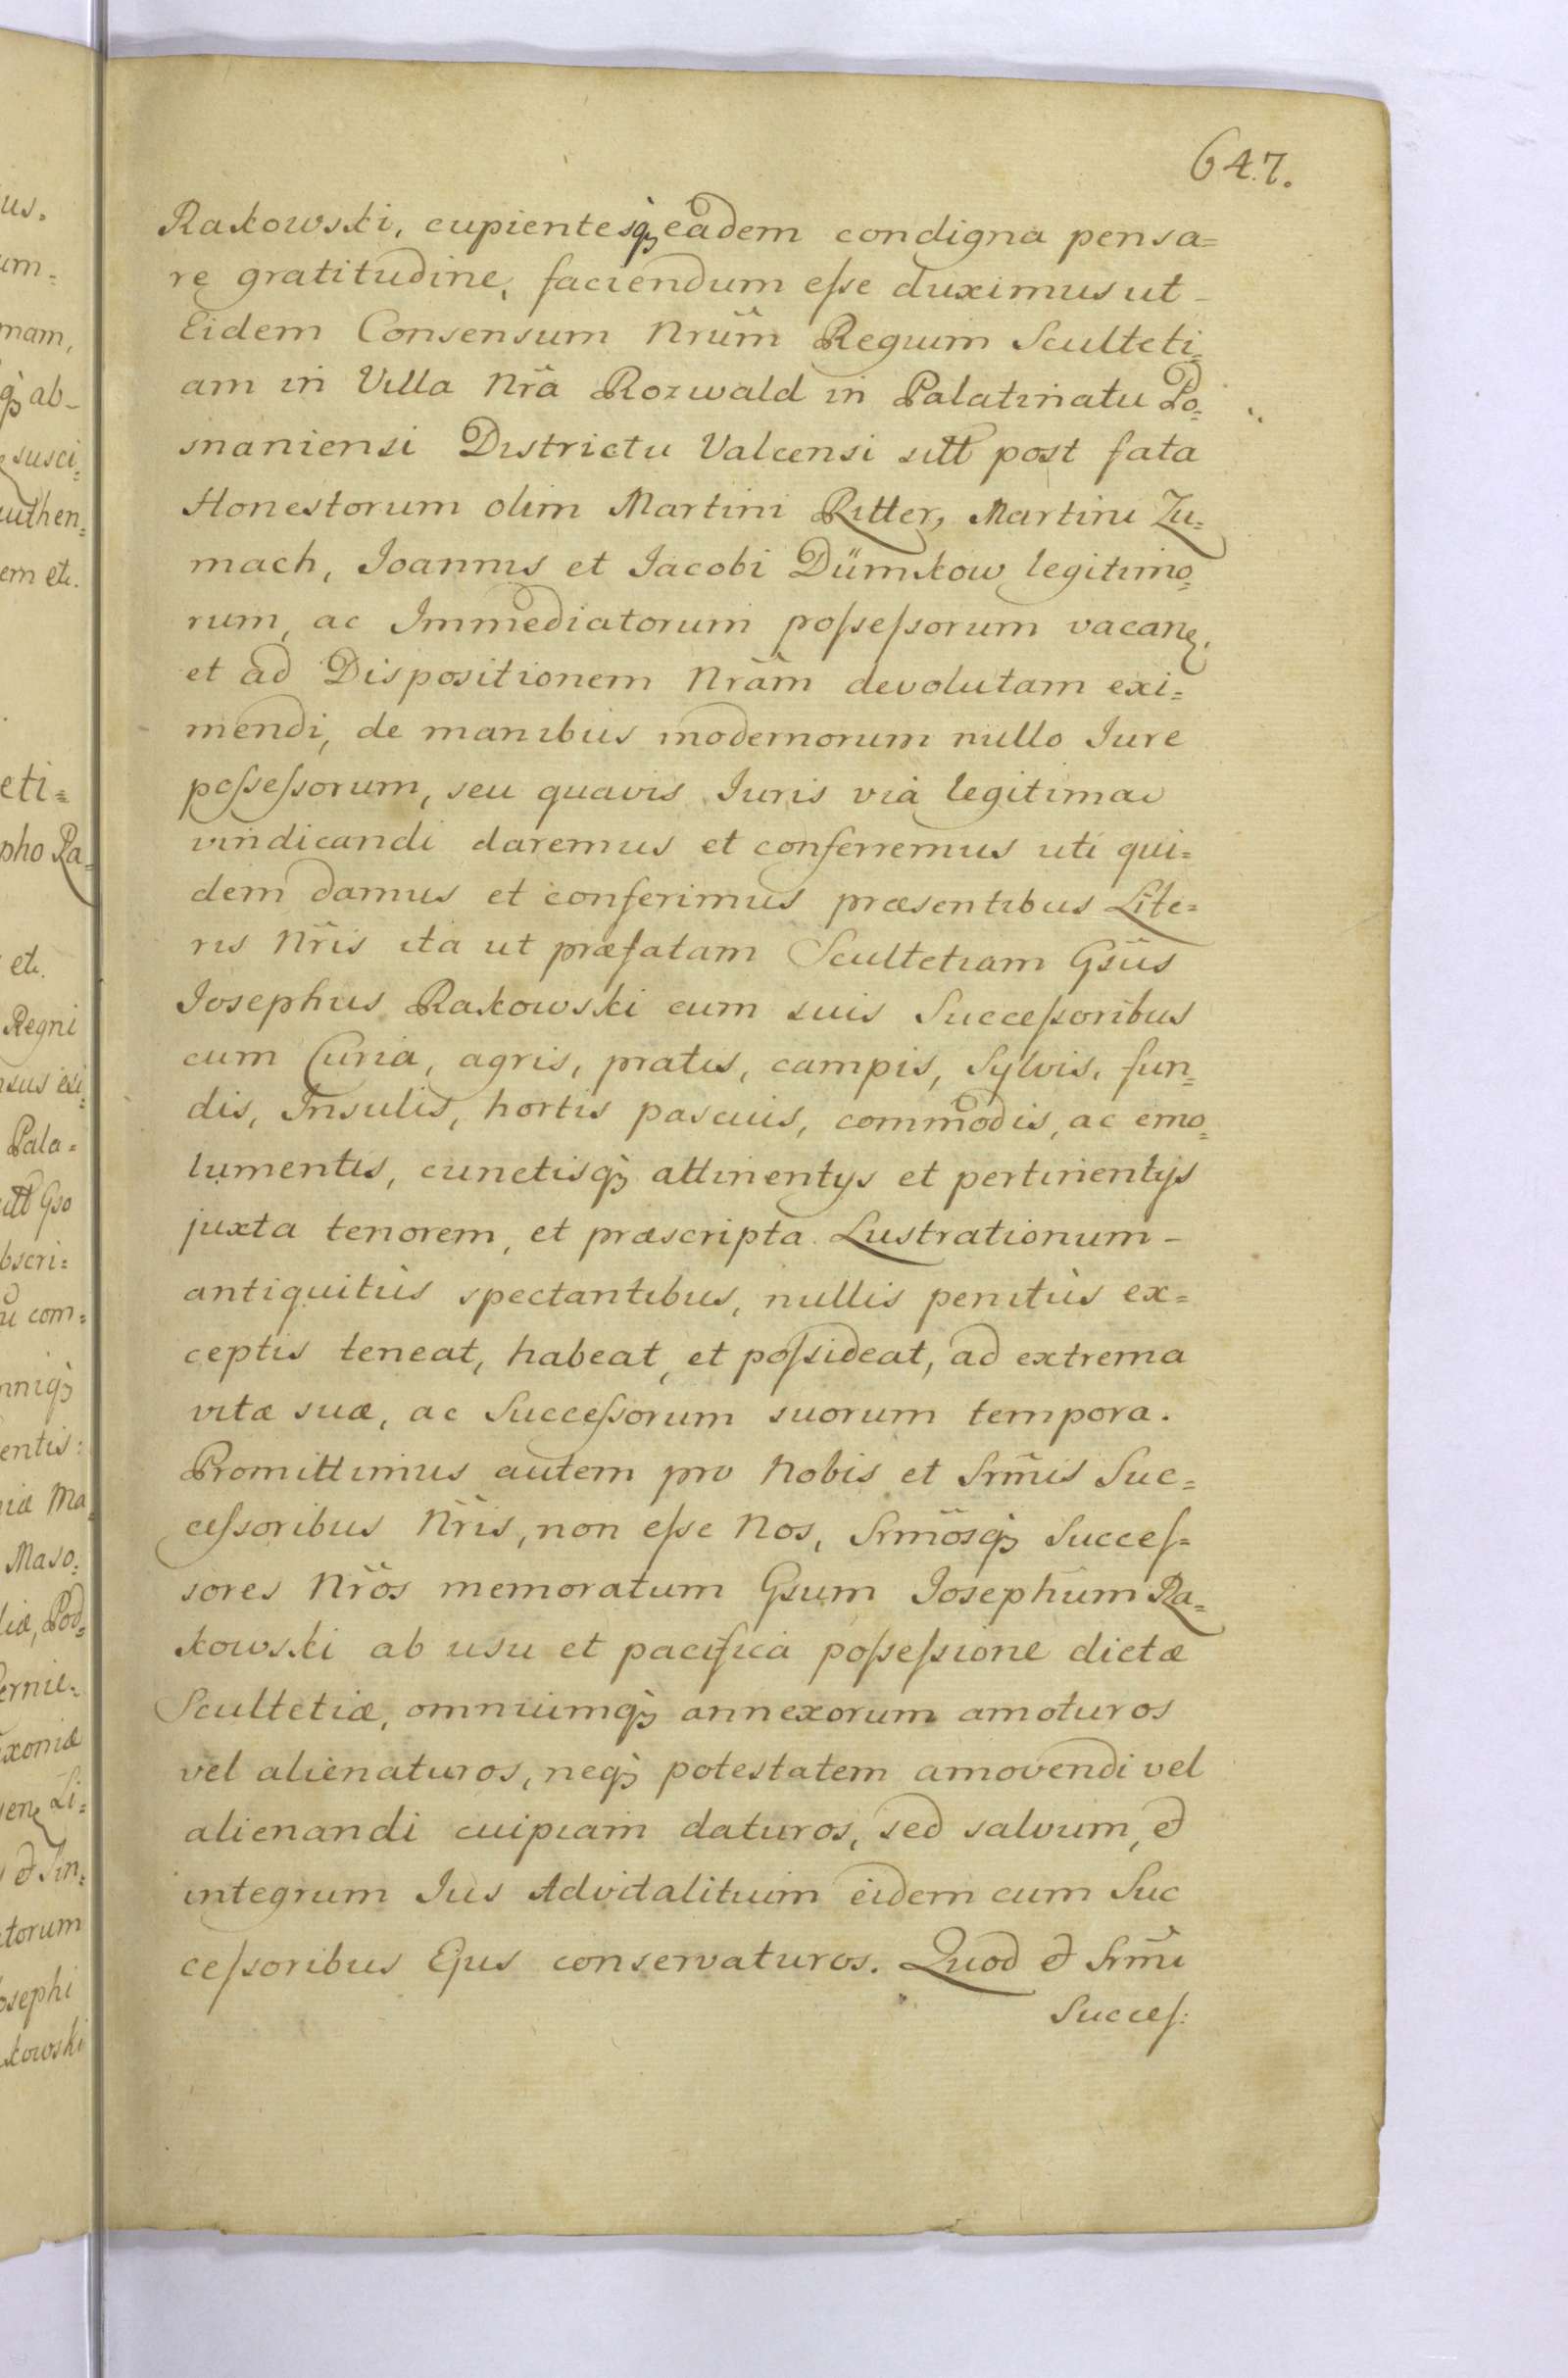 647.
Rakowski, cupientesq; eadem condigna pensa=
re gratitudine, faciendum eſse duximus ut
Eidem Consensum Nrũm Regium Sculteti=
am in Villa Nrã Rozwald in Palatinatu Po=
snaniensi Districtu Valcensi sitt post fata
Honestorum olim Martini Ritter, Martini Zu=
mach, Joannis et Jacobi Dümkow legitimo=
rum, ac Immediatorum poſseſsorum vacanę.
et ad Dispositionem Nrãm devolutam exi=
mendi, de manibus modernorum nullo Jure
poſseſsorum, seu quavis Juris viâ legitimâ
vindicandi daremus et conferremus uti qui=
dem damus et conferimus præsentibus Lite=
ris Nris ita ut præfatam Scultetiam Gsus
Josephus Rakowski cum suis Succeſsoribus
cum Curia, agris, pratis, campis, Sylvis, fun=
dis, Insulis, hortis pascuis, commodis, ac emo=
lumentis, cunctisq; attinentys et pertinentys
juxta tenorem, et præscripta Lustrationum
antiquitùs spectantibus, nullis penitùs ex=
ceptis teneat, habeat, et poſsideat, ad extrema
vitæ suæ, ac Succeſsorum suorum tempora.
Promittimus autem pro Nobis et Srmis Suc=
ceſsoribus Nris, non eſse Nos, Srmosq; Succeſ=
sores Nros memoratum Gsum Josephum Ra=
kowski ab usu et pacifica poſseſsione dictæ
Scultetiæ, omniumq; annexorum amoturos
vel alienaturos, neq; potestatem amovendi vel
alienandi cuipiam daturos, sed salvum, et
integrum Jus Advitalitium eidem cum Suc
ceſsoribus Ejus conservaturos. Quod et Srmi
Succeſ: